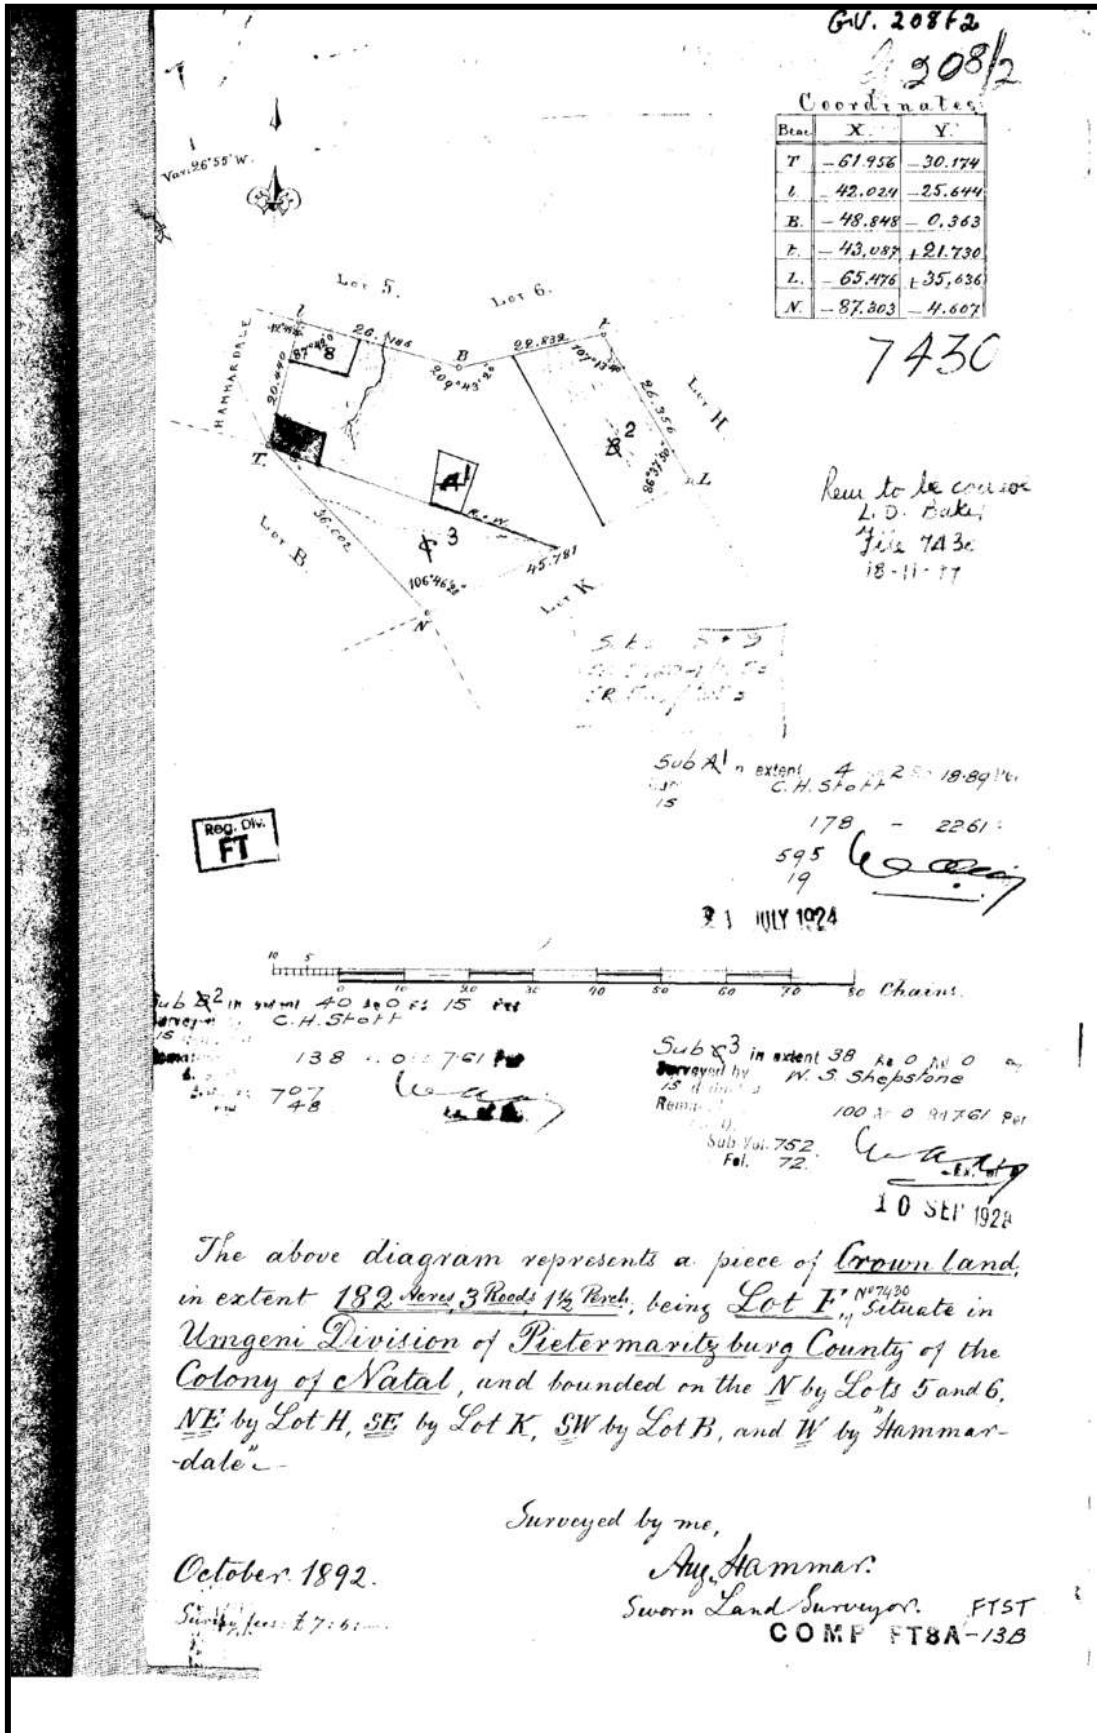 G.V. 208F2
208/2
Coordinates.
Beac X. Y.
T -61.956 -30.174
l -42.024 -25.644
B. -48.848 -0.363
t. -43.087 +21.730
L. -65.476 +35.636
N. -87.303 -4.607
7430
Var. 26°55' W.
Lot 5.
Lot 6.
l
26.186
B
22.839
t
HAMMARDALE
87°
8
20.440
209°43'20"
107°13'
26.356
Lot H.
2
86°37'50"
L
T.
A1
R.W.
36.002
Lot B.
3
106°46'20"
45.781
Lot K
N
Rem to be
L.D. Baker
File 7430
18-11-77
Sub A1 in extent 4 2 18.89 Per
C.H. Stott
15
178 - 2261
595
19
Reg. Div.
FT
21 JULY 1924
10 5 0 10 20 30 40 50 60 70 80 Chains.
Sub B2 in extent 40 Ac 0 Rs 15 Per
Surveyed C.H. Stott
15
138 0 7.61 Per
707
48
Sub C3 in extent 38 Ac 0 Rd 0
Surveyed by W.S. Shepstone
15
100 Ac 0 Rd 7.61 Per
Sub. Vol. 752.
Fol. 72.
10 SEP 1928
The above diagram represents a piece of Crown land,
in extent 182 Acres 3 Roods 1½ Perch, being Lot F, No 7430 Situate in
Umgeni Division of Pietermaritzburg County of the
Colony of Natal, and bounded on the N by Lots 5 and 6,
NE by Lot H, SE by Lot K, SW by Lot B, and W by "Hammar-
-dale".
Surveyed by me,
October 1892.
Aug. Hammar.
Sworn Land Surveyor.
FTST
Survey fees: £7:6:
COMP FT8A-13B